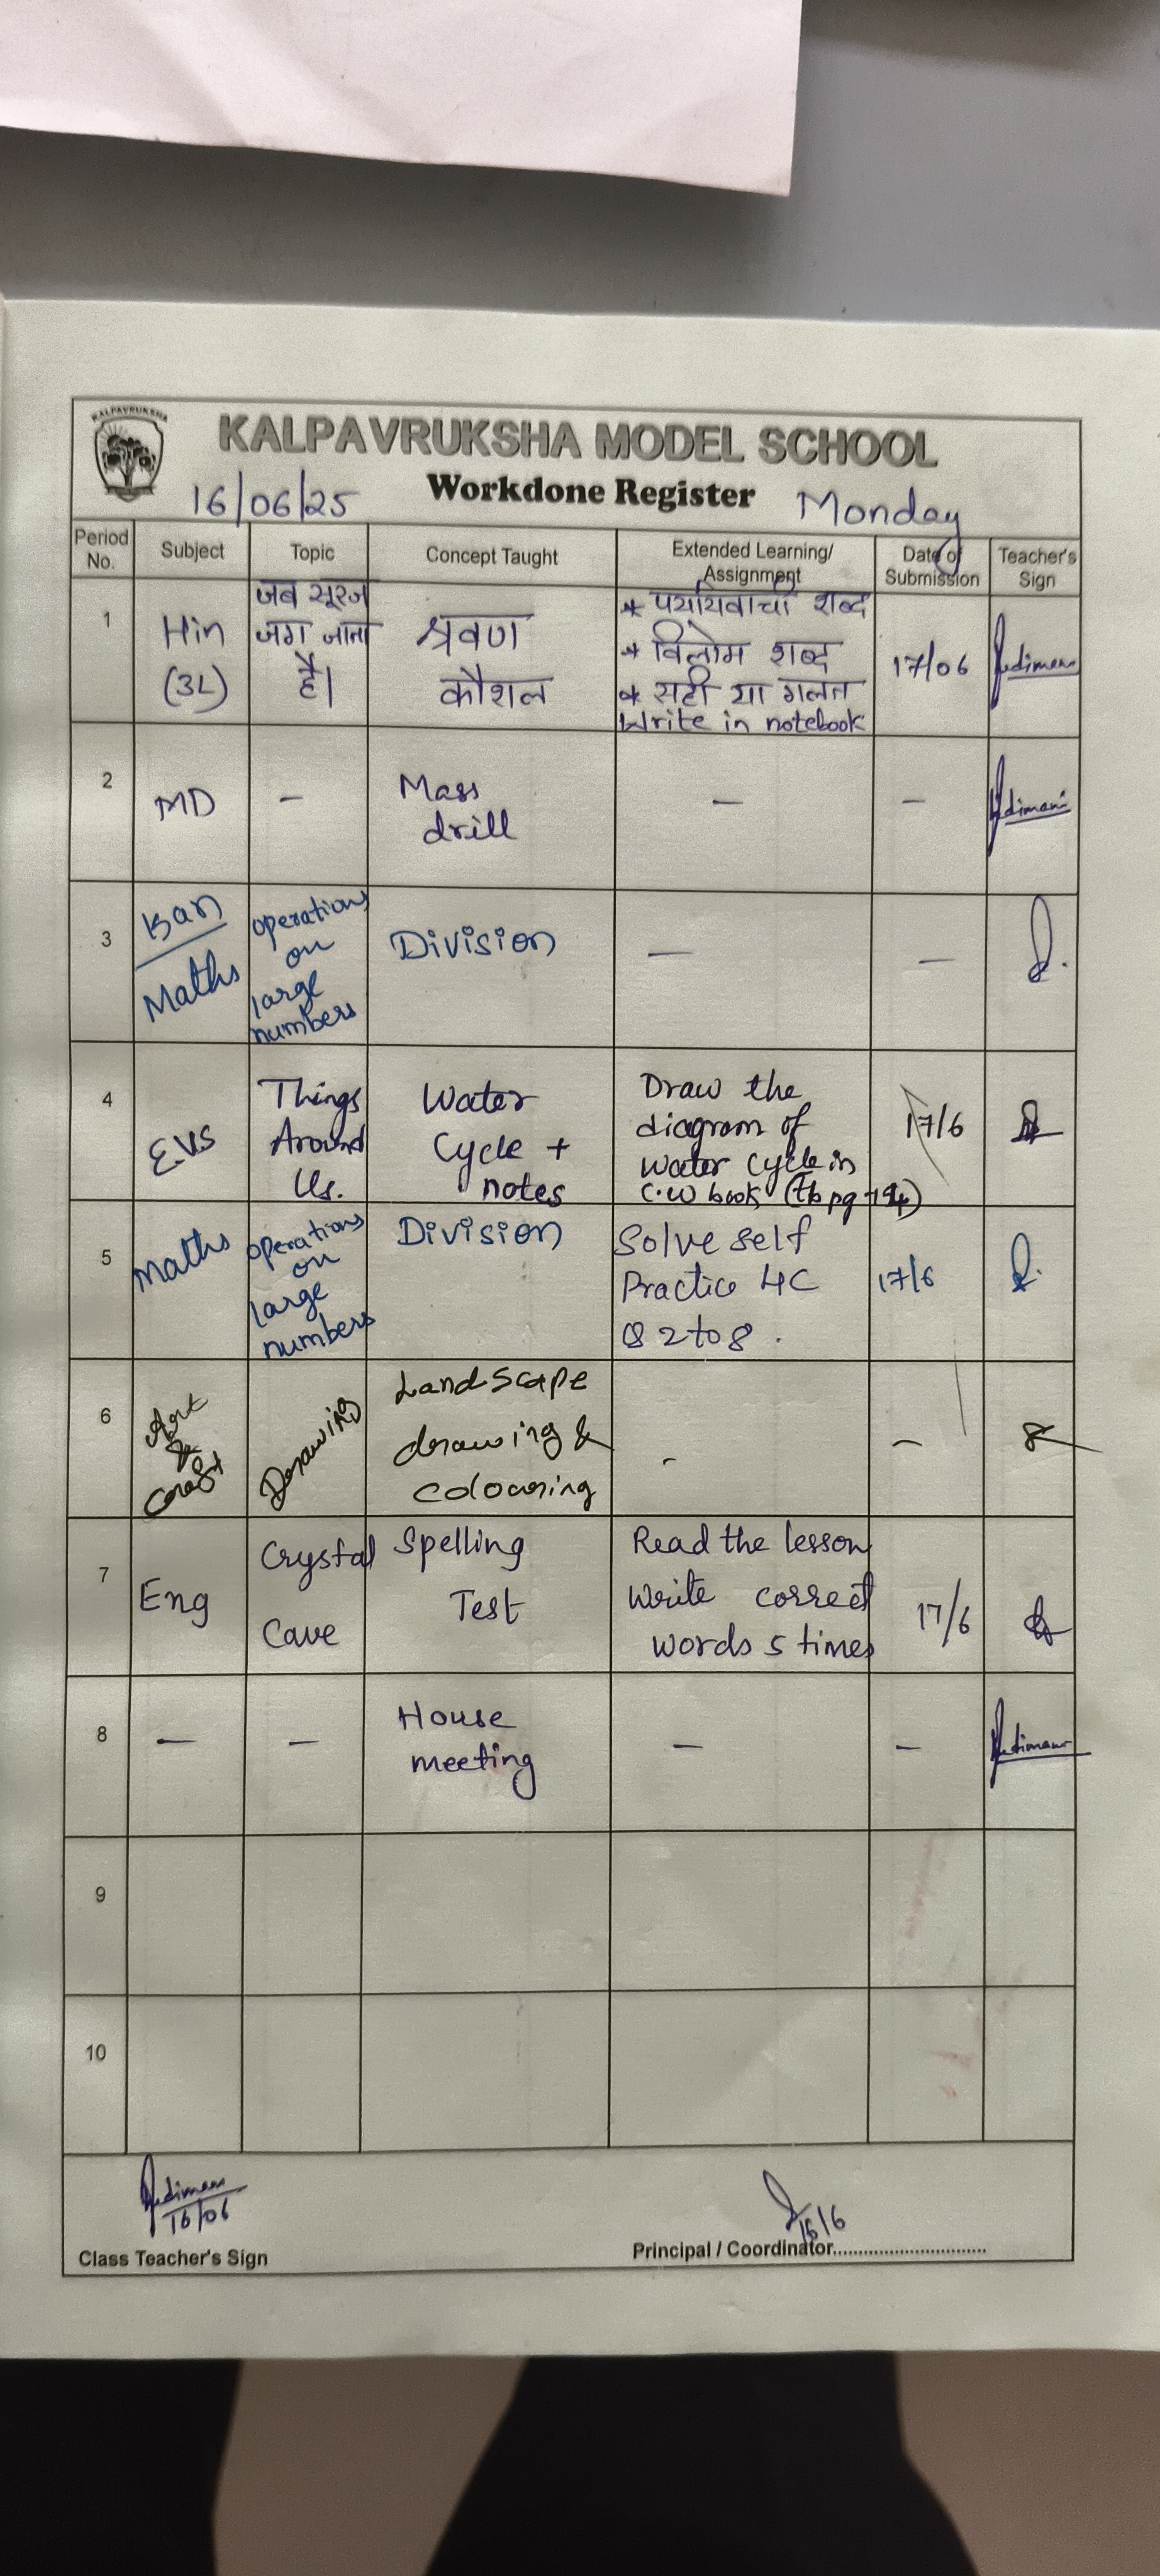 KALPAVRUKSHA
KALPAVRUKSHA MODEL SCHOOL
Workdone Register
16/06/25 Monday
Period No. Subject Topic Concept Taught Extended Learning/ Assignment Date of Submission Teacher's Sign
1 Hin (3L) जब सूरज जग जाता है। श्रवण कौशल * पर्यायवाची शब्द * विलोम शब्द * सही या गलत Write in notebook 17/06
2 MD - Mass drill - -
3 Kan Maths operations on large numbers Division - -
4 EVS Things Around Us. Water Cycle + notes Draw the diagram of water cycle in C.W book (tb pg - 194) 17/6
5 Maths operations on large numbers Division Solve self Practice 4C Q 2 to 8. 17/6
6 Art & Craft Drawing Landscape drawing & colouring - -
7 Eng Crystal Cave Spelling Test Read the lesson Write correct words 5 times 17/6
8 - - House meeting - -
9
10
16/06 16/6
Class Teacher's Sign Principal / Coordinator..............................